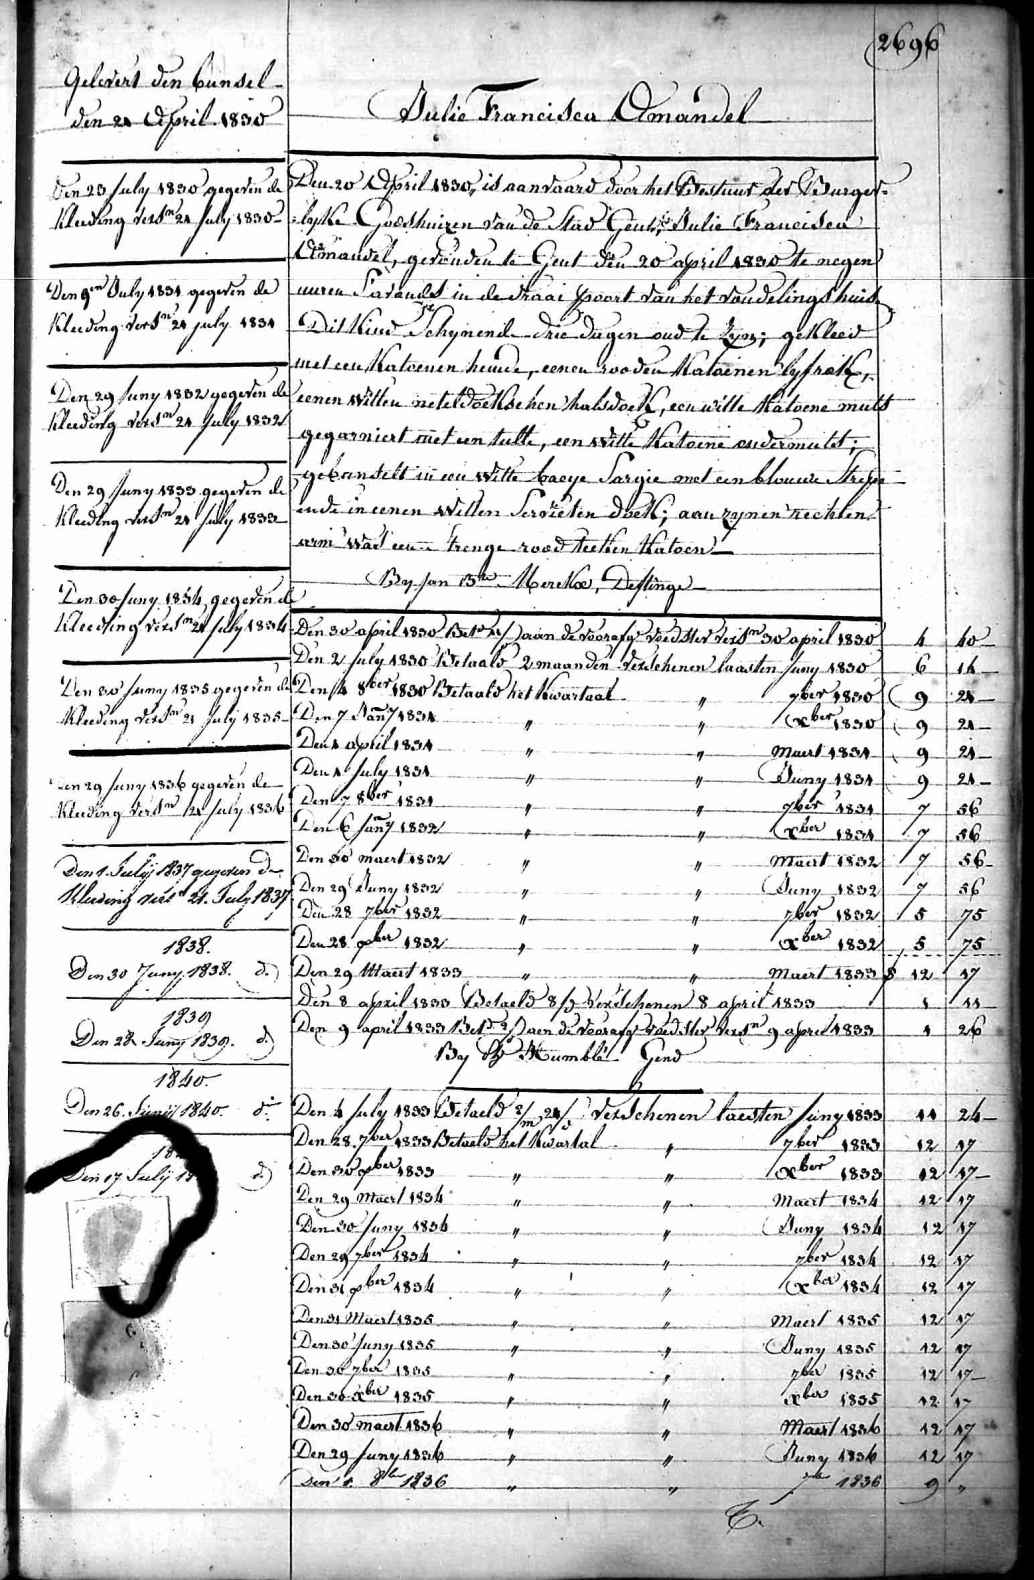 2696
Gelevert den bunsel
den 21 April 1830
Julie Francisca Amandel
Den 23 July 1830 gegeven de
kleeding versn 21 July 1830
Den 9en July 1831 gegeven de
kleeding versn 21 july 1831
Den 29 Juny 1832 gegeven de
kleeding versn 21 July 1832
Den 29 Juny 1833 gegeven de
kleeding versn 21 July 1833
Den 30 Juny 1834 gegeven de
kleeding versn 21 July 1834
Den 30 Juny 1835 gegeven de
kleeding versn 21 July 1835
Den 29 Juny 1836 gegeven de
kleeding versn 21 July 1836
Den 1 July 1837 gegeven de
kleeding versn 21 July 1837
1838.
Den 30 Juny 1838. do
1839
Den 28 Juny 1839. do
1840.
Den 26 Junij 1840. do
Den 17 July do
Den 20 April 1830, is aanvaard door het Bestuur der Burger-
lyke Godshuizen van de Stad Gent, Julie Francisca
Amandel, gevonden te Gent den 20 april 1830 te negen
uuren s'avonds in de draai poort van het vondelingshuis
Dit kind schynende drie dagen oud te zyn; gekleed
met een katoenen hemde, eenen rooden katoenen lyfrok,
eenen witten neteldoekschen halsdoek, een witte katoene muts
gegarniert met een tulle, een witte katoene ondermuts;
gebunselt in een witte baeye sargie met een blauwe strepe
ende in eenen witten servieten doek; aan zynen rechten
arm was eene strenge rood teeken katoen
By Jan Bte Merckx, Destinge
Den 30 april 1830 Bet. aan de voorafge voedster versn 30 april 1830 4 40
Den 2 July 1830 Betaald 2 maanden verschenen laasten Juny 1830 6 14
Den 4 8ber 1830 Betaald het kwartaal " 7ber 1830 9 21
Den 7 Jany 1831 " " xber 1830 9 21
Den 1 april 1831 " " Maert 1831 9 21
Den 1 July 1831 " " Juny 1831 9 21
Den 7 8ber 1831 " " 7ber 1831 7 56
Den 6 Jany 1832 " " xber 1831 7 56
Den 30 maert 1832 " " Maert 1832 7 56
Den 29 Juny 1832 " " Juny 1832 7 56
Den 28 7ber 1832 " " 7ber 1832 5 75
Den 28 xber 1832 " " xber 1832 5 75
Den 29 Maert 1833 " " Maert 1833 12 17
Den 8 april 1833 Betaeld verschenen 8 april 1833 1 11
Den 9 april 1833 Bet. aen de voorafge voedster versn 9 april 1833 1 26
By Humblé Gend
Den 4 July 1833 Betaeld verschenen laesten Juny 1833 11 24
Den 28 7ber 1833 Betaeld het kwartal " 7ber 1833 12 17
Den 30 xber 1833 " " xber 1833 12 17
Den 29 Maert 1834 " " Maert 1834 12 17
Den 30 Juny 1834 " " Juny 1834 12 17
Den 29 7ber 1834 " " 7ber 1834 12 17
Den 31 xber 1834 " " xber 1834 12 17
Den 31 Maert 1835 " " Maert 1835 12 17
Den 30 Juny 1835 " " Juny 1835 12 17
Den 30 7ber 1835 " " 7ber 1835 12 17
Den 30 xber 1835 " " xber 1835 12 17
Den 30 maert 1836 " " Maert 1836 12 17
Den 29 Juny 1836 " " Juny 1836 12 17
Den 1 8br 1836 " " 7br 1836 9 "